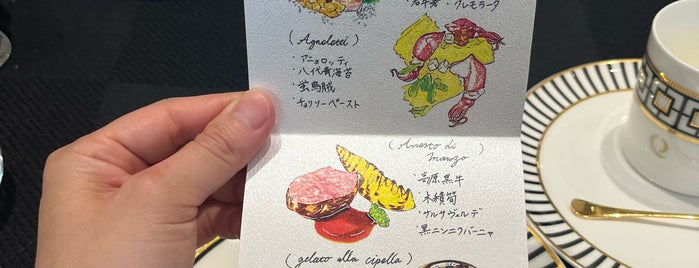 ・グレモラータ
(Agnolotti)
・アニョロッティ
・八代青海苔
・蛍烏賊
・チョリソーペースト
(Arrosto di
manzo)
・高原黒牛
・木積筍
・サルサヴェルデ
・黒ニンニクバーニャ
(gelato alla cipolla)
Q